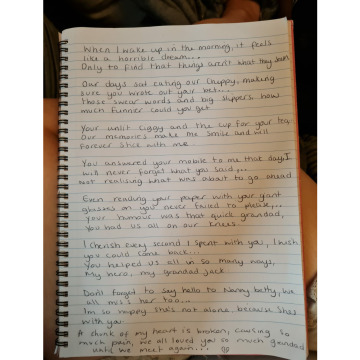 When I wake up in the morning, it feels
like a horrible dream...
Only to find that things aren't what they seem
Our days sat eating our chippy, making
sure you wrote out your bets...
those swear words and big slippers how
much funnier could you get
Your unlit ciggy and the cup for your tea
Our memories make me smile and will
forever stick with me
You answered your mobile to me that day, I
will never forget what you said...
not realising what was about to go ahead
Even reading your paper with your giant
glasses on you never tried to please...
Your humour was that quick grandad,
You had us all on our knees
I cherish every second I spent with you, I wish
you could come back...
You helped us all in so many ways,
My hero, my grandad Jack
Don't forget to say hello to Nanny betty, we
all miss her too...
I'm so happy she's not alone, because she's
with you
A chunk of my heart is broken, causing so
much pain, we all loved you so much grandad
until we meet again...